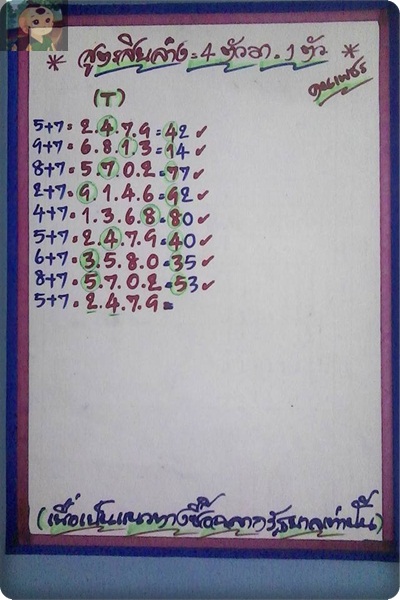 * สูตรสิบล่าง = 4 ตัวมา . 1 ตัว *
(T)
5+7 = 2.4.7.9 = 42 ✓
9+7 = 6.8.1.3 = 14 ✓
8+7 = 5.7.0.2 = 77 ✓
2+7 = 9.1.4.6 = 92 ✓
4+7 = 1.3.6.8 = 80 ✓
5+7 = 2.4.7.9 = 40 ✓
6+7 = 3.5.8.0 = 35 ✓
8+7 = 5.7.0.2 = 53 ✓
5+7 = 2.4.7.9 =
(เพื่อเป็นแนวทางซื้อฉลากรัฐบาลเท่านั้น)